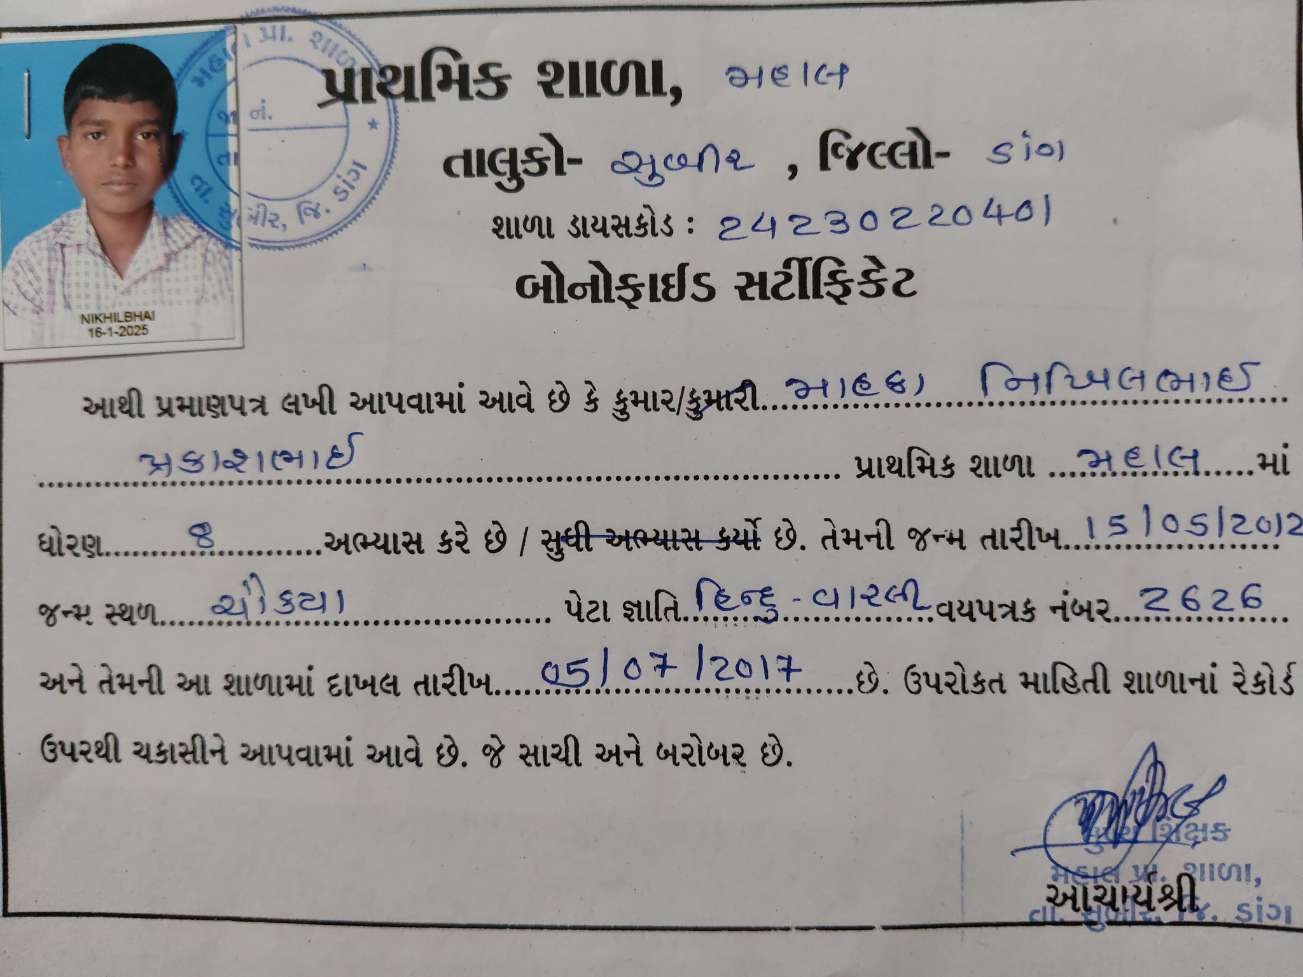 પ્રાથમિક શાળા, મહાલ
તાલુકો- સુબીર , જિલ્લો- ડાંગ
શાળા ડાયસકોડ : 24230220401
બોનોફાઈડ સર્ટીફિકેટ
NIKHILBHAI
16-1-2025
મહાલ પ્રા. શાળા
નં.
તા. સુબીર, જિ. ડાંગ
આથી પ્રમાણપત્ર લખી આપવામાં આવે છે કે કુમાર/કુમારી નિખિલભાઈ
પ્રકાશભાઈ પ્રાથમિક શાળા મહાલ માં
ધોરણ 8 અભ્યાસ કરે છે / સુધી અભ્યાસ કર્યો છે. તેમની જન્મ તારીખ 15/05/2012
જન્મ સ્થળ ચૌકયા પેટા જ્ઞાતિ હિન્દુ - વારલી વયપત્રક નંબર 2626
અને તેમની આ શાળામાં દાખલ તારીખ 05/07/2017 છે. ઉપરોકત માહિતી શાળાનાં રેકોર્ડ
ઉપરથી ચકાસીને આપવામાં આવે છે. જે સાચી અને બરોબર છે.
મુખ્ય શિક્ષક
મહાલ પ્રા. શાળા,
આચાર્યશ્રી
તા. સુબીર, જિ. ડાંગ